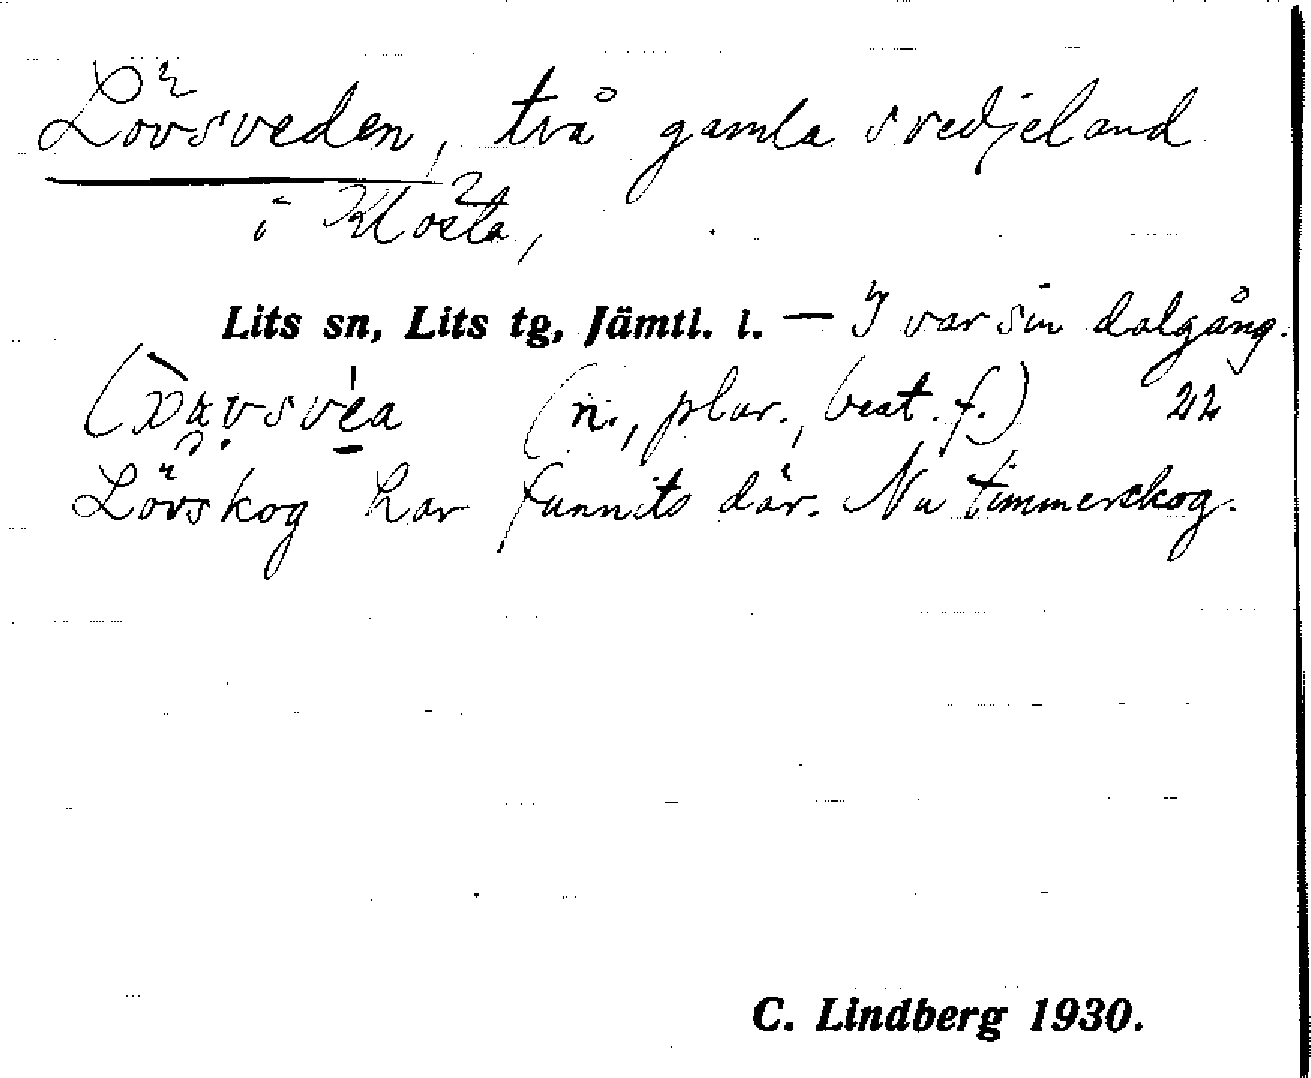 Lövsveden, två gamla svedjeland
i Klösta,
Lits sn, Lits tg, Jämtl. l. — I var sin dalgång.
(n., plur., best. f.) 22
Lövskog har funnits där. Nu timmerskog.
C. Lindberg 1930.